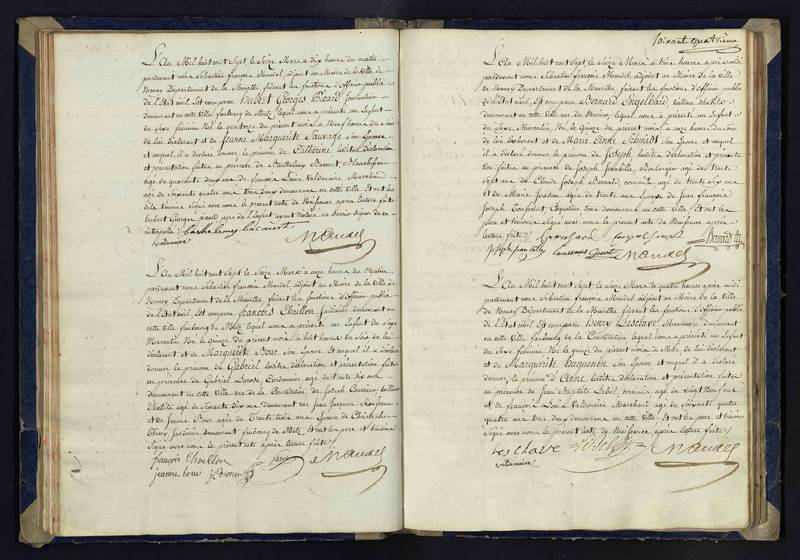 L'An Mil huit cent Sept le Seize Mars a dix heures du matin
pardevant nous Sébastien françois Mandel, adjoint au Maire de la Ville de
Nancy Département de la Meurthe, faisant les fonctions d'Officier public
de l'Etat civil, Est comparu Hubert Georges Picard
demeurant en cette Ville faubourg de Metz lequel nous a présenté un Enfant
du Sexe feminin Né le quatorze du présent mois à Neuf heures du Soir
de lui déclarant et de Jeanne Marguerite Sauvage Son Epouse
et auquel il a déclaré donner le prénom de Catherine lesdites déclaration
et présentation faites en présence de Barthelemy Bacourt
age de quarante deux ans de françois Louis Valdenaire Marchand
age de Soixante quatre ans tous deux demeurant en cette Ville Et ont les
dits témoins Signé avec nous le présent acte de Naissance après lecture faite
hubert Georges picard père de l'Enfant ayant déclaré ne Savoir Signer de ce
interpellé
Barthelemy bacourt
valdenaire
Mandel
L'An Mil huit cent Sept le Seize Mars a onze heures du Matin
pardevant nous Sébastien françois Mandel, adjoint au Maire de la Ville de
Nancy Département de la Meurthe, faisant les fonctions d'Officier public
de l'Etat civil, Est comparu françois Chrillon demeurant en
cette Ville faubourg de Metz lequel nous a présenté un Enfant du Sexe
Masculin Né le quinze du présent mois à huit heures du Soir de lui
déclarant et de Marguerite Bour Son Epouse Et auquel il a déclaré
donner le prénom de Gabriel lesdites déclaration et présentation faites
en présence de Gabriel Larose Cordonnier age de trente
demeurant en cette Ville rue de la Constitution de Joseph
age de Soixante dix ans demeurant rue Jean Jacques Rousseau
et de Jeanne Bour agée de Trente trois ans Epouse de Christophe
demeurant faubourg de Metz, Et ont les père et témoins
Signé avec nous le présent acte après lecture faite
françois Chrillon
jeanne bour
Mandel
soixante-quatrième
L'An Mil huit cent Sept le Seize Mars a trois heures après midi
pardevant nous Sébastien françois Mandel adjoint au Maire de la Ville
de Nancy Département de la Meurthe faisant les fonctions d'Officier public
de l'Etat civil Est comparu Bernard Engelhard tailleur d'habits
demeurant en cette Ville rue du lequel nous a présenté un Enfant
du Sexe Masculin Né le Quinze du présent mois a onze heures du Soir
de lui déclarant et de Marie Anne Schmidt Son Epouse et auquel
il a déclaré donner le prénom de Joseph lesdites déclaration et présenta
tion faites en présence de Joseph Boulanger agé de trente
Sept ans de Claude Joseph Bernard commis agé de trente
et de Marie agée de trente ans Epouse de Jean françois
Joseph tous demeurant en cette Ville Et ont les
père et témoins Signé avec nous le présent acte de Naissance après
lecture faite
Bernard
Mandel
L'An Mil huit cent Sept le Seize Mars a quatre heures après midi
pardevant nous Sébastien françois Mandel adjoint au Maire de la Ville
de Nancy Département de la Meurthe faisant les fonctions d'Officier public
de l'Etat civil Est comparu Henry Lesclave demeurant
en cette Ville faubourg de la Constitution lequel nous a présenté un Enfant
du Sexe féminin Né le quinze du présent mois à Midi de lui déclarant
et de Marguerite Son Epouse et auquel il a déclaré
donner le prénom d'Anne lesdites déclaration et présentation faites
en présence de Jean Baptiste Lebel commis agé de
et de françois Louis Valdenaire Marchand agé de Soixante
quatre ans tous deux demeurant en cette Ville Et ont les père et témoins
Signé avec nous le présent acte de Naissance après lecture faite
Les Clave
valdenaire
Mandel